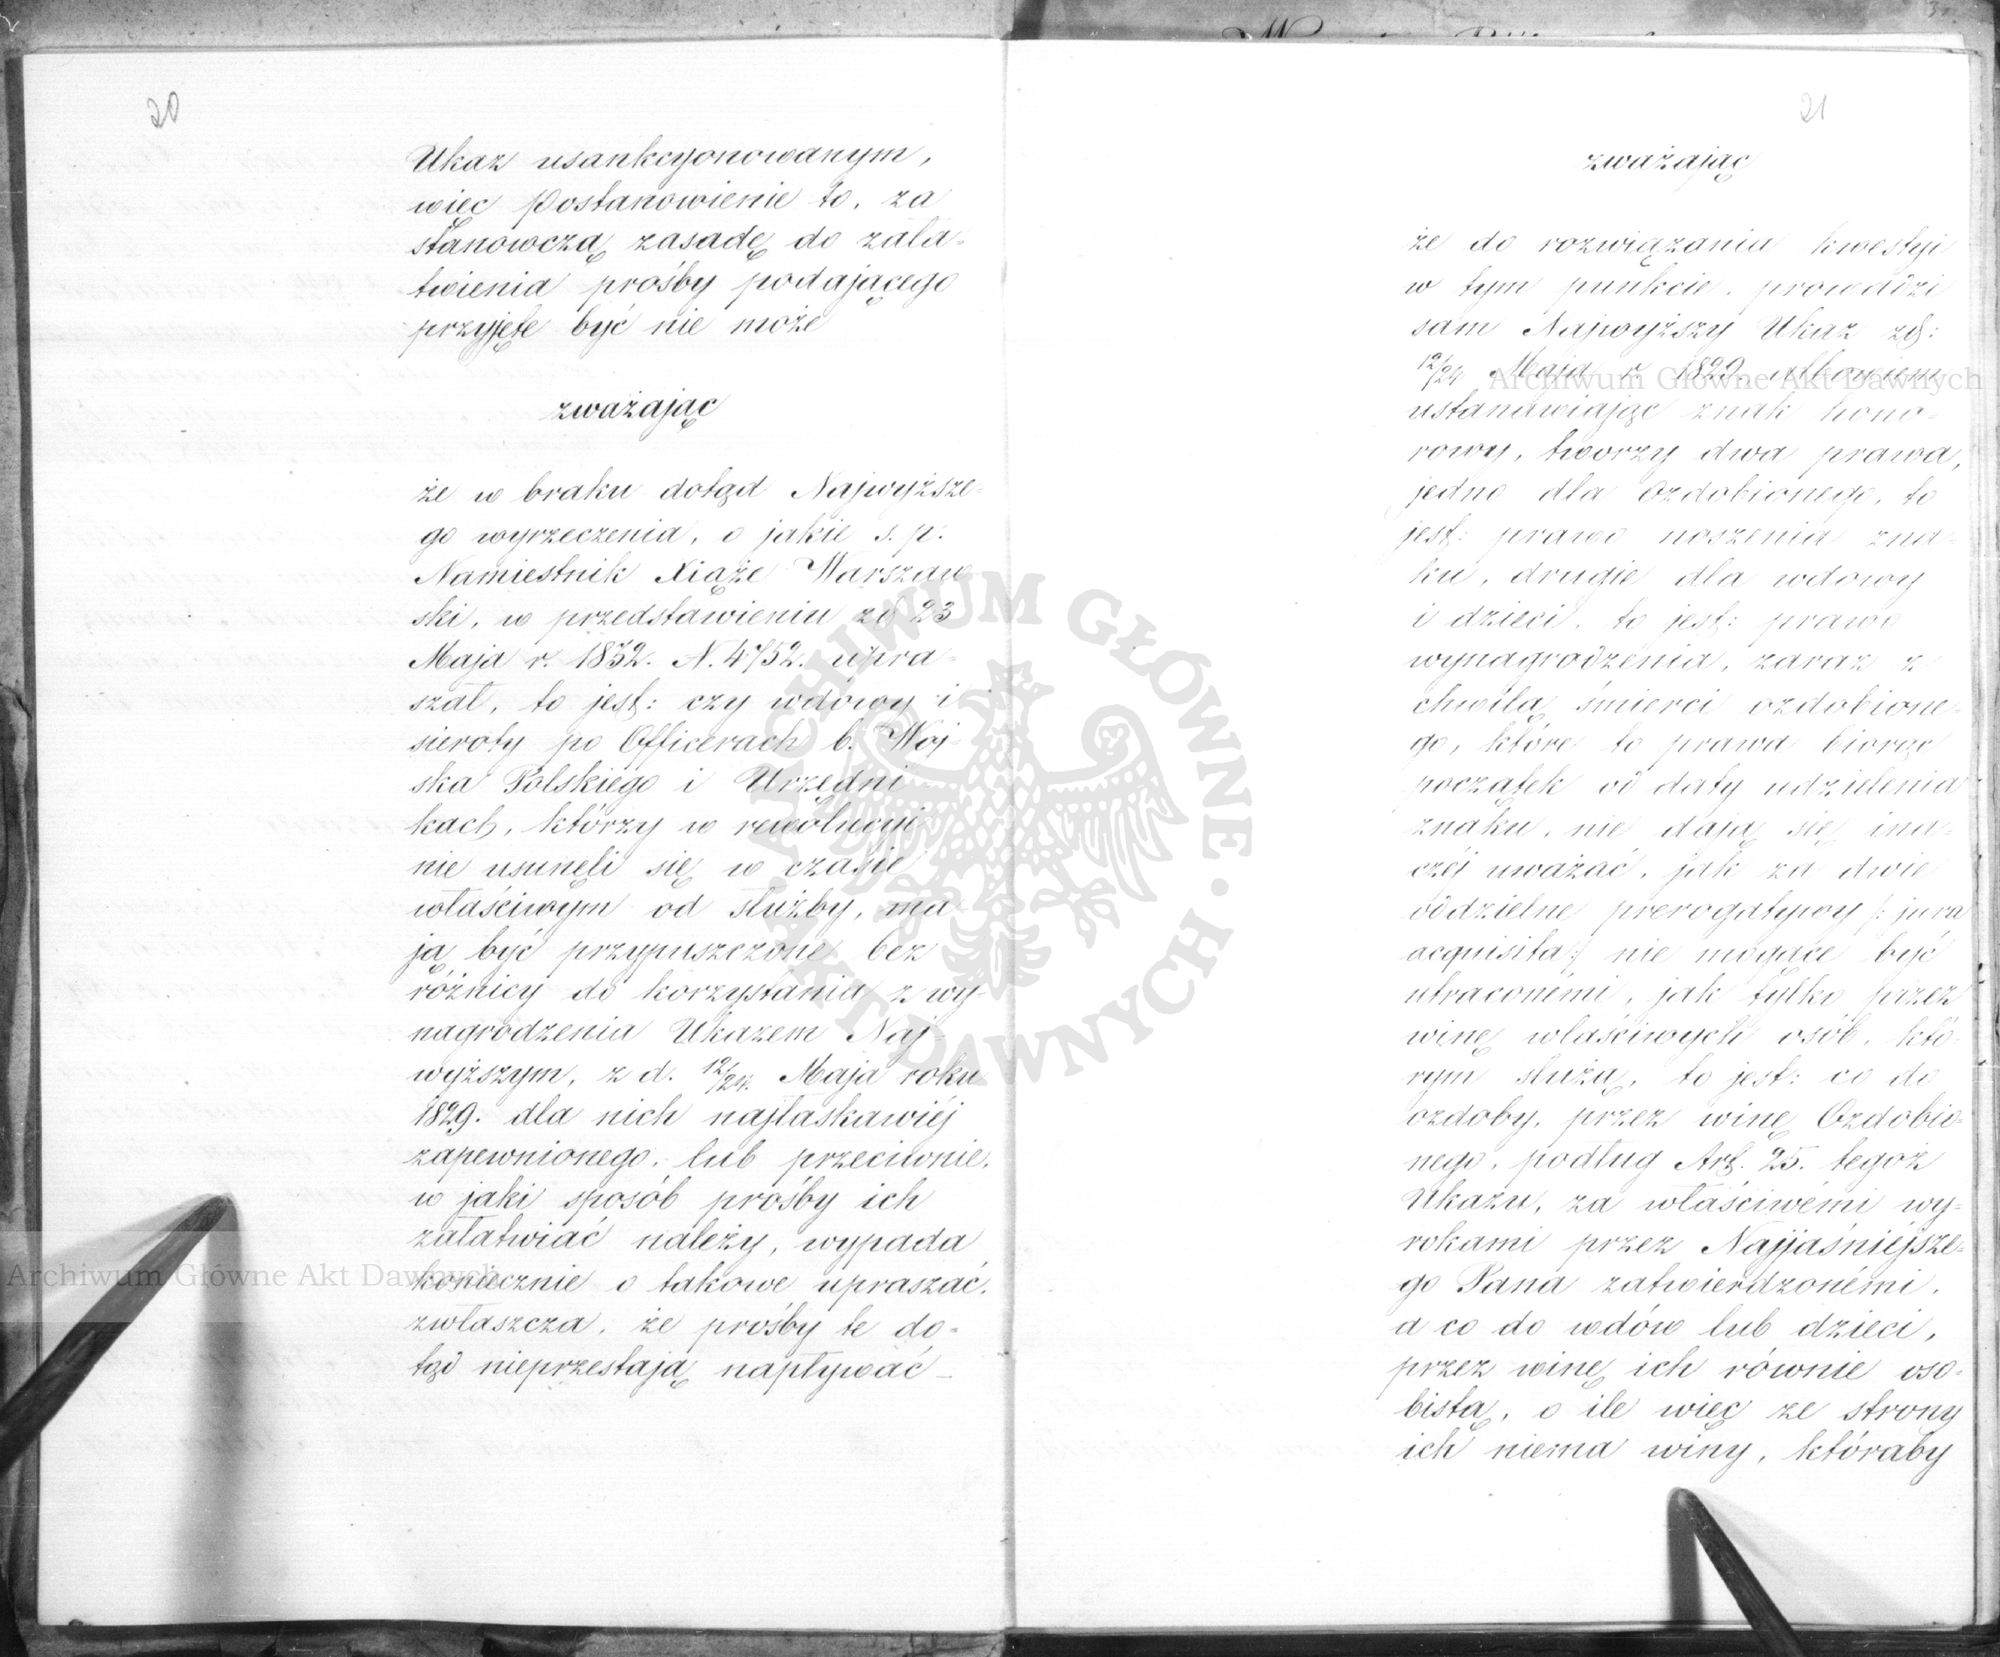 20
Ukaz usankcyonowanym,
więc Postanowienie to, za
stanowczą zasadę do zała-
twienia prośby podającego
przyjęte być nie może
zważając
że w braku dotąd Najwyższe-
go wyrzeczenia, o jakie s. p.
Namiestnik Xiąże Warszaw
ski, w przedstawieniu zd 23
Maja r. 1832. N. 4752. upra-
szał, to jest: czy wdowy i
sieroty po Officerach b. Woj-
ska Polskiego i Urzędni
kach, którzy w rewolucyi
nie usunęli się w czasie
właściwym od służby, ma-
ją być przypuszczone bez
różnicy do korzystania z wy-
nagrodzenia Ukazem Naj-
wyższym, z d. 12/24. Maja roku
1829. dla nich najłaskawiéj
zapewnionego, lub przeciwnie,
w jaki sposób prośby ich
załatwiać należy, wypada
koniecznie o takowe upraszać,
zwłaszcza, że prośby te do-
tąd nieprzestają napływać —
21
zważając
że do rozwiązania kwestyi
w tym punkcie, prowadzi
sam Najwyższy Ukaz zd:
12/24 Maja r. 1829. albowiem
ustanawiając znak hono-
rowy, tworzy dwa prawa,
jedno dla Ozdobionego, to
jest: prawo noszenia zna-
ku, drugie dla wdowy
i dzieci, to jest: prawo
wynagrodzenia, zaraz z
chwilą śmierci ozdobione-
go, które to prawa biorąc
początek od daty udzielenia
znaku, nie dają się ina-
czéj uważać, jak za dwie
oddzielne prerogatywy /: jura
acquisita :/ nie mogące być
utraconémi, jak tylko przez
winę właściwych osób, któ-
rym służą, to jest: co do
ozdoby, przez winę Ozdobio-
nego, podług Art. 25. tegoż
Ukazu, za właściwémi wy-
rokami przez Najjaśniejsze-
go Pana zatwierdzonémi,
a co do wdów lub dzieci,
przez winę ich równie oso-
bistą, o ile więc ze strony
ich niema winy, któraby
Archiwum Główne Akt Dawnych
Archiwum Główne Akt Dawnych
ARCHIWUM GŁÓWNE · AKT DAWNYCH ·